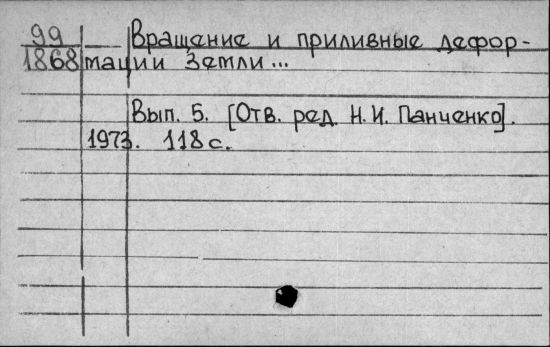 99
1868
— Вращение и приливные дефор-
мации Земли...
Вып. 5. [Отв. ред. Н.И. Панченко].
1973. 118 с.